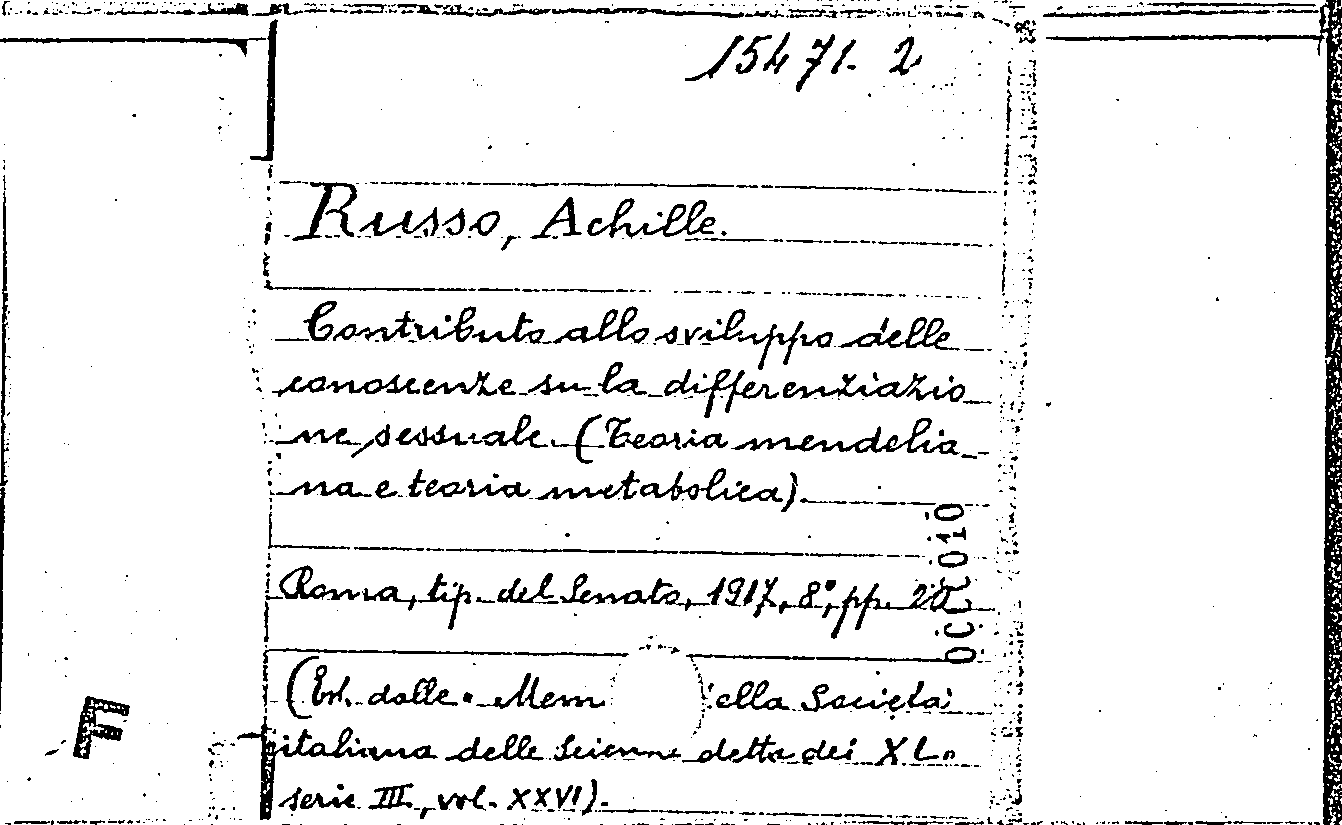 15471. 2
Russo, Achille.
Contributo allo sviluppo delle
conoscenze su la differenziazio
ne sessuale. (Teoria mendelia
na e teoria metabolica).
Roma, tip. del Senato, 1917, 8°, pp. 20
(Est. dalle « Mem ella Società
italiana delle Scienze detta dei XL»
serie III, vol. XXVI).
F